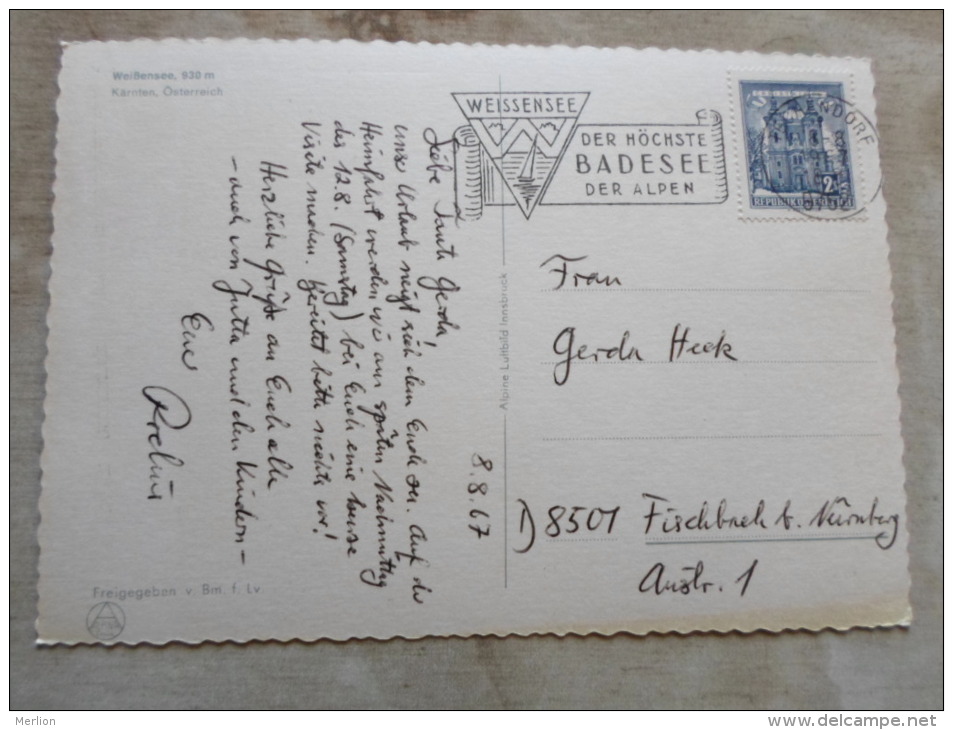 Weißensee, 930 m
Kärnten, Österreich
WEISSENSEE
DER HÖCHSTE
BADESEE
DER ALPEN
2
REPUBLIK ÖSTERREICH
8.8.67
Liebe Tante Gerda!
Unser Urlaub neigt sich dem Ende zu. Auf der
Heimfahrt werden wir am späten Nachmittag
des 12.8. (Samstag) bei Euch eine kurze
Visite machen. Bereitet bitte nichts vor!
Herzliche Grüße an Euch alle
– auch von Jutta und den Kindern –
Euer
Frau
Gerda Heck
D) 8501 Fischbach b. Nürnberg
Alpine Luftbild Innsbruck
Freigegeben v. Bm. f. Lv.
Merlion
www.delcampe.net